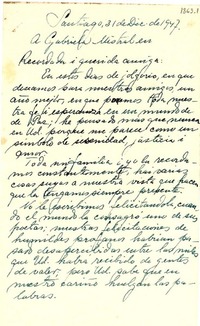 1963.1
Santiago, 31 de Dic. de 1947.
A Gabriela Mistral en
Recordada i querida amiga:
En estos días de jolgorio, en que
deseamos para nuestros amigos, un
año mejor, en que ponemos toda nues-
tra fe i esperanza en un mundo
de Paz; he pensado más que nunca
en Ud. porque me parece como un
símbolo de serenidad, justicia i
amor.
Toda mi familia i yo la recorda-
mos constantemente, hai varias
cosas suyas a nuestra vista que hacen
que la tengamos siempre presente.
No le escribimos felicitándola, cuan-
do el mundo la consagró uno de sus
poetas; nuestras felicitaciones de
humildes profanos habrían pa-
sado desapercibidas entre las mil
que Ud. habrá recibido de gentes
de valer, pero Ud. sabe que en
nuestro cariño huelgan las pa-
labras.